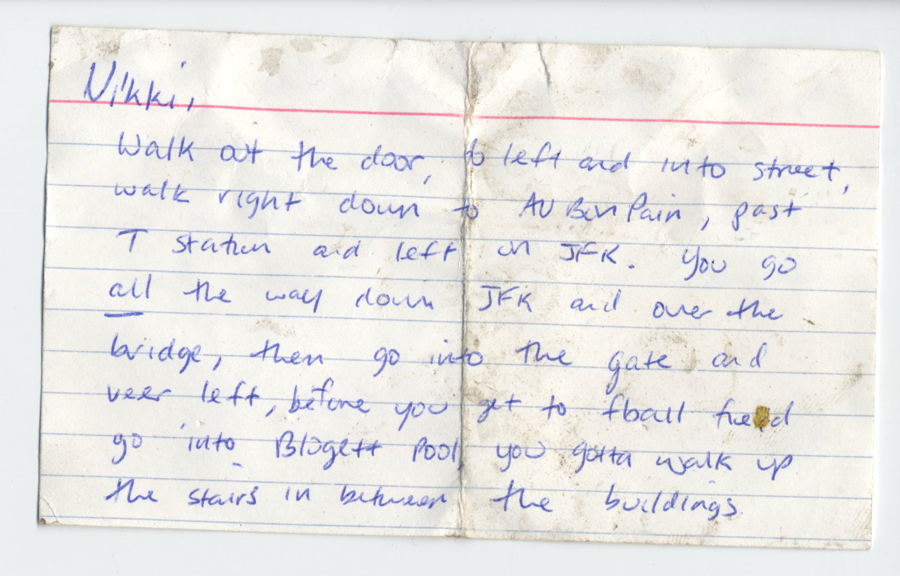 Nikki,
Walk out the door, to left and into street,
walk right down to AU Bon Pain, past
T station and left on JFK. You go
all the way down JFK and over the
bridge, then go into the gate and
veer left, before you get to fball field
go into Blogett Pool, you gotta walk up
the stairs in between the buildings